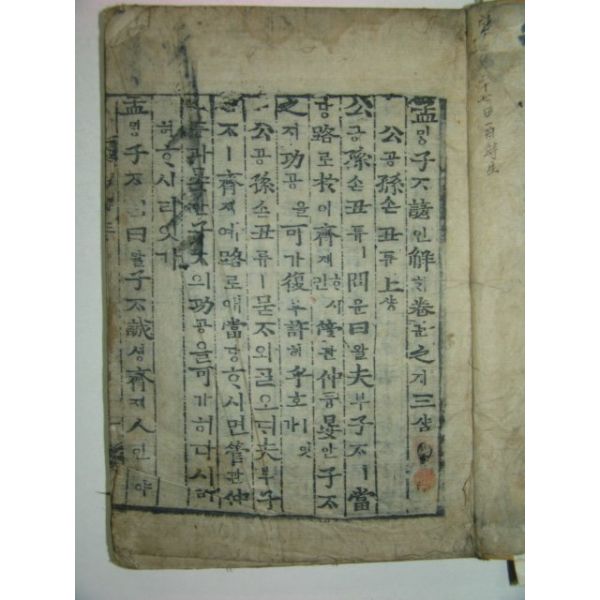 孟ᄆᆡᇰ子ᄌᆞ諺언解ᄒᆡ卷권之지三삼
公공孫손丑튜上샹
公공孫손丑튜ㅣ問문曰왈夫부子ᄌᆞㅣ當
당路로於어齊졔ᄒᆞ시면管관仲듕晏안子ᄌᆞ
之지功공을可가復부許허乎호ㅣ잇가
公공孫손丑튜ㅣ묻ᄌᆞ와ᄀᆞᆯ오ᄃᆡ夫부子
ᄌᆞㅣ齊졔예路로애當당ᄒᆞ시면管관仲
듕과晏안子ᄌᆞ의功공을可가히다시許
허ᄒᆞ시리잇가
孟ᄆᆡᇰ子ᄌᆞㅣ曰왈子ᄌᆞ誠셩齊졔人인